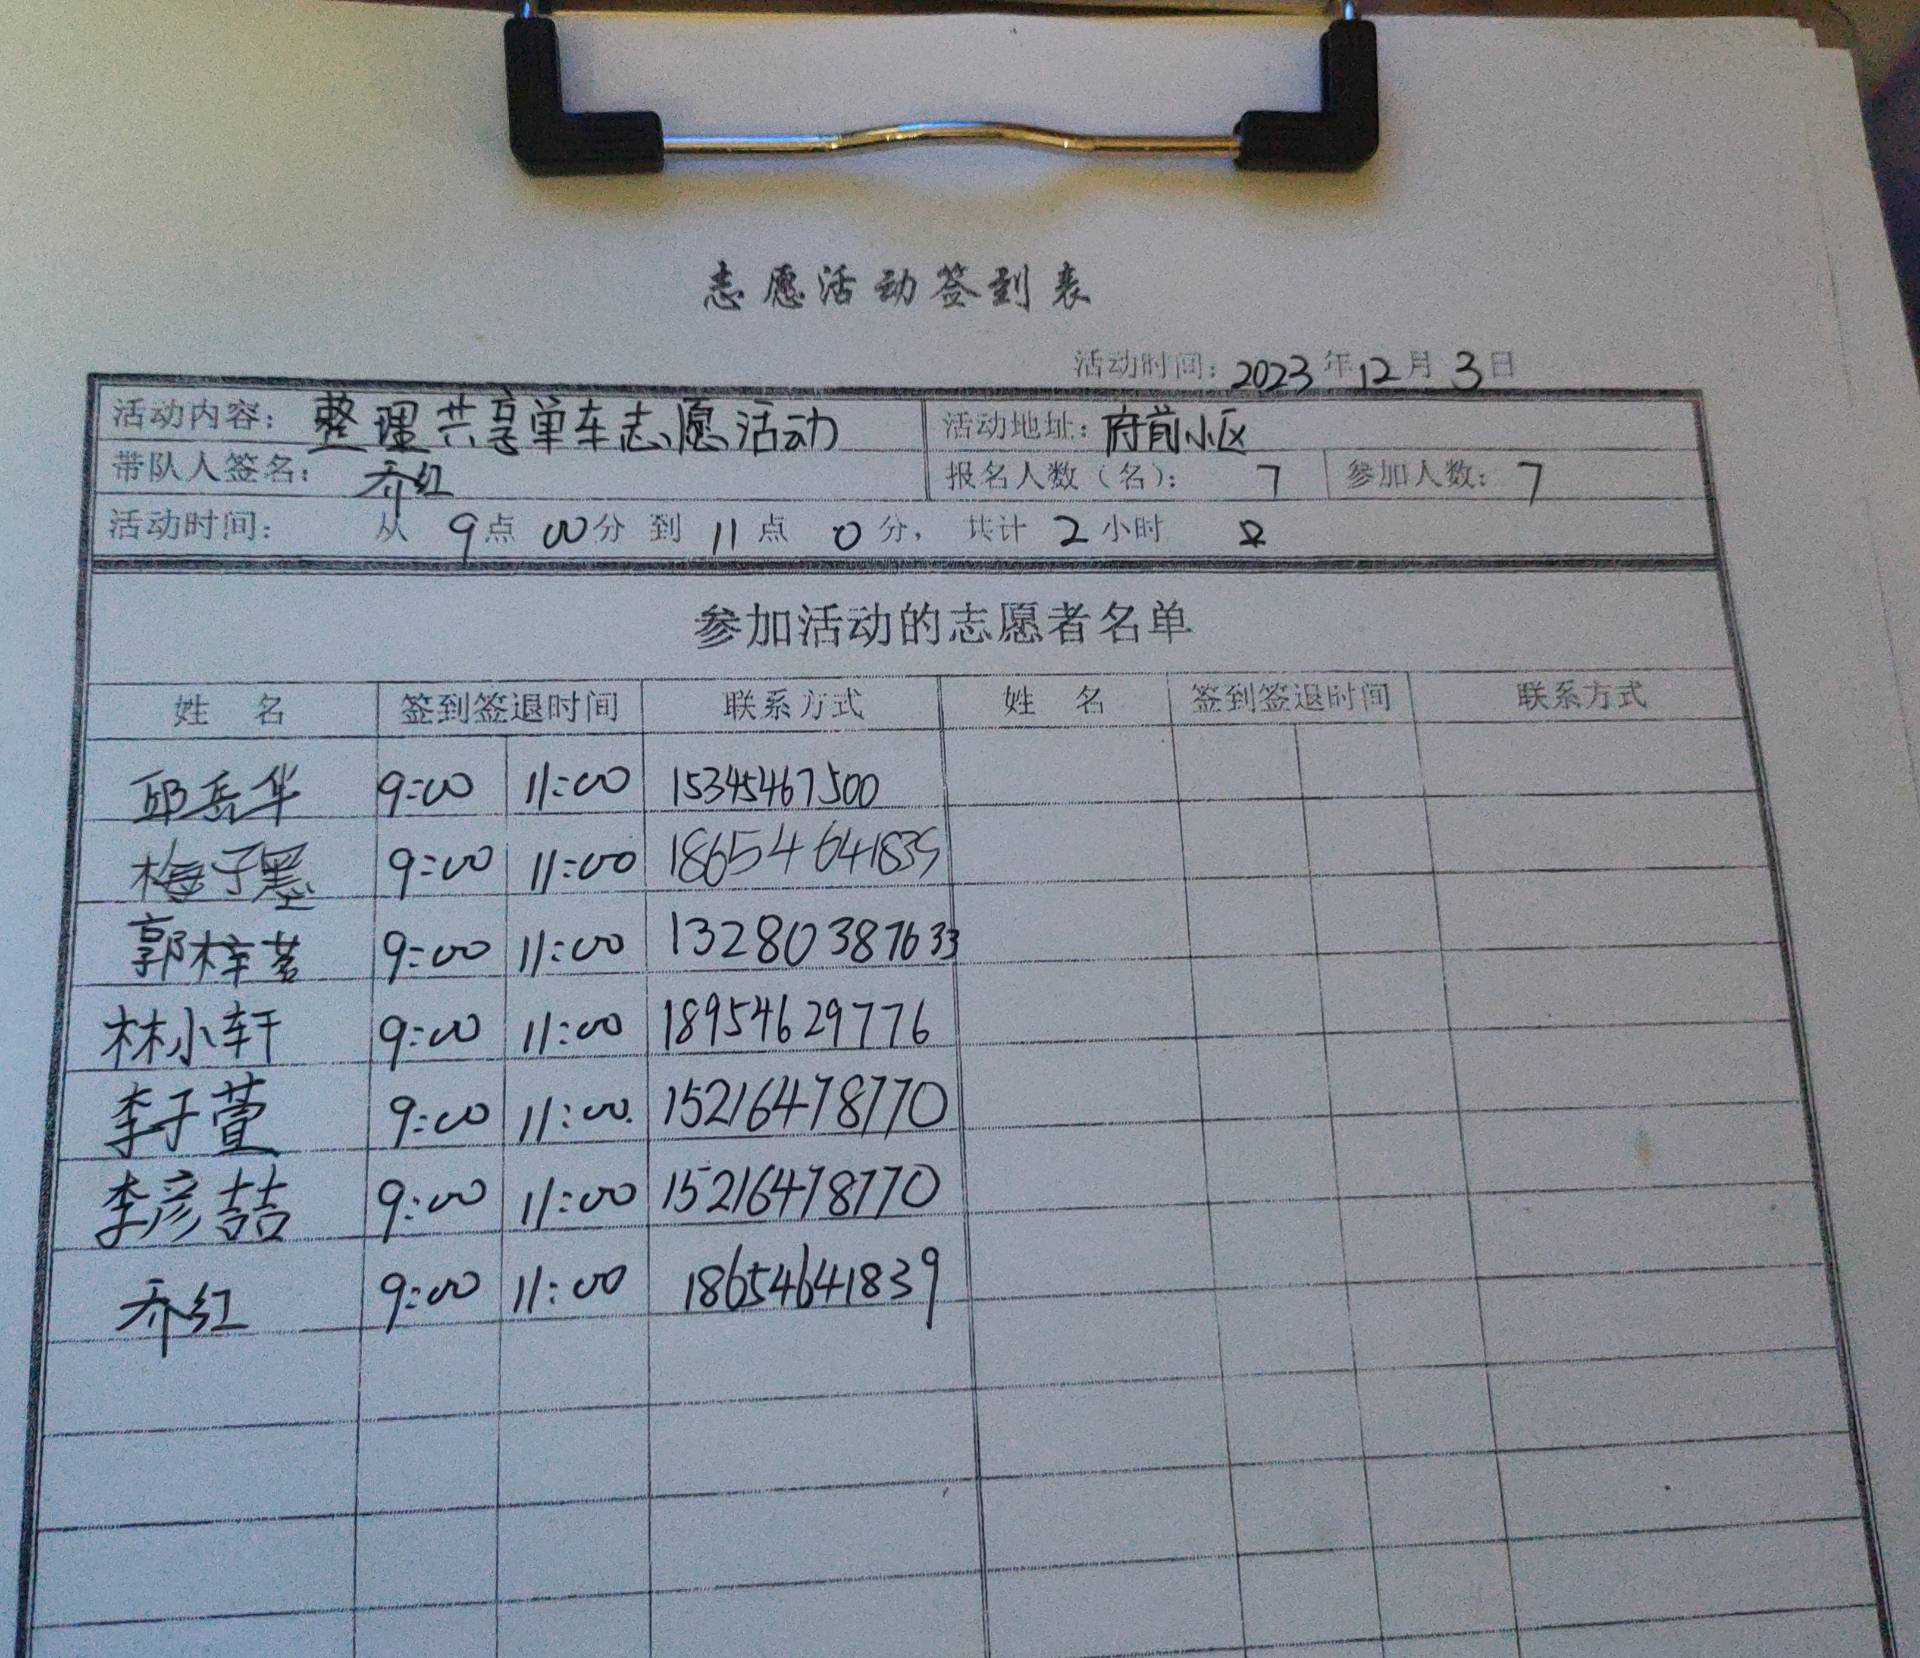 志愿活动签到表
活动时间：2023年12月3日
活动内容：整理共享单车志愿活动 活动地址：府前小区
带队人签名：乔红 报名人数（名）：7 参加人数：7
活动时间：从9点00分到11点0分，共计2小时
参加活动的志愿者名单
姓名 签到签退时间 联系方式 姓名 签到签退时间 联系方式
邱岳华 9:00 11:00 15345467500
梅子墨 9:00 11:00 18654641839
郭梓茗 9:00 11:00 13280387633
林小轩 9:00 11:00 18954629776
李子萱 9:00 11:00 15216478770
李彦喆 9:00 11:00 15216478770
乔红 9:00 11:00 18654641839